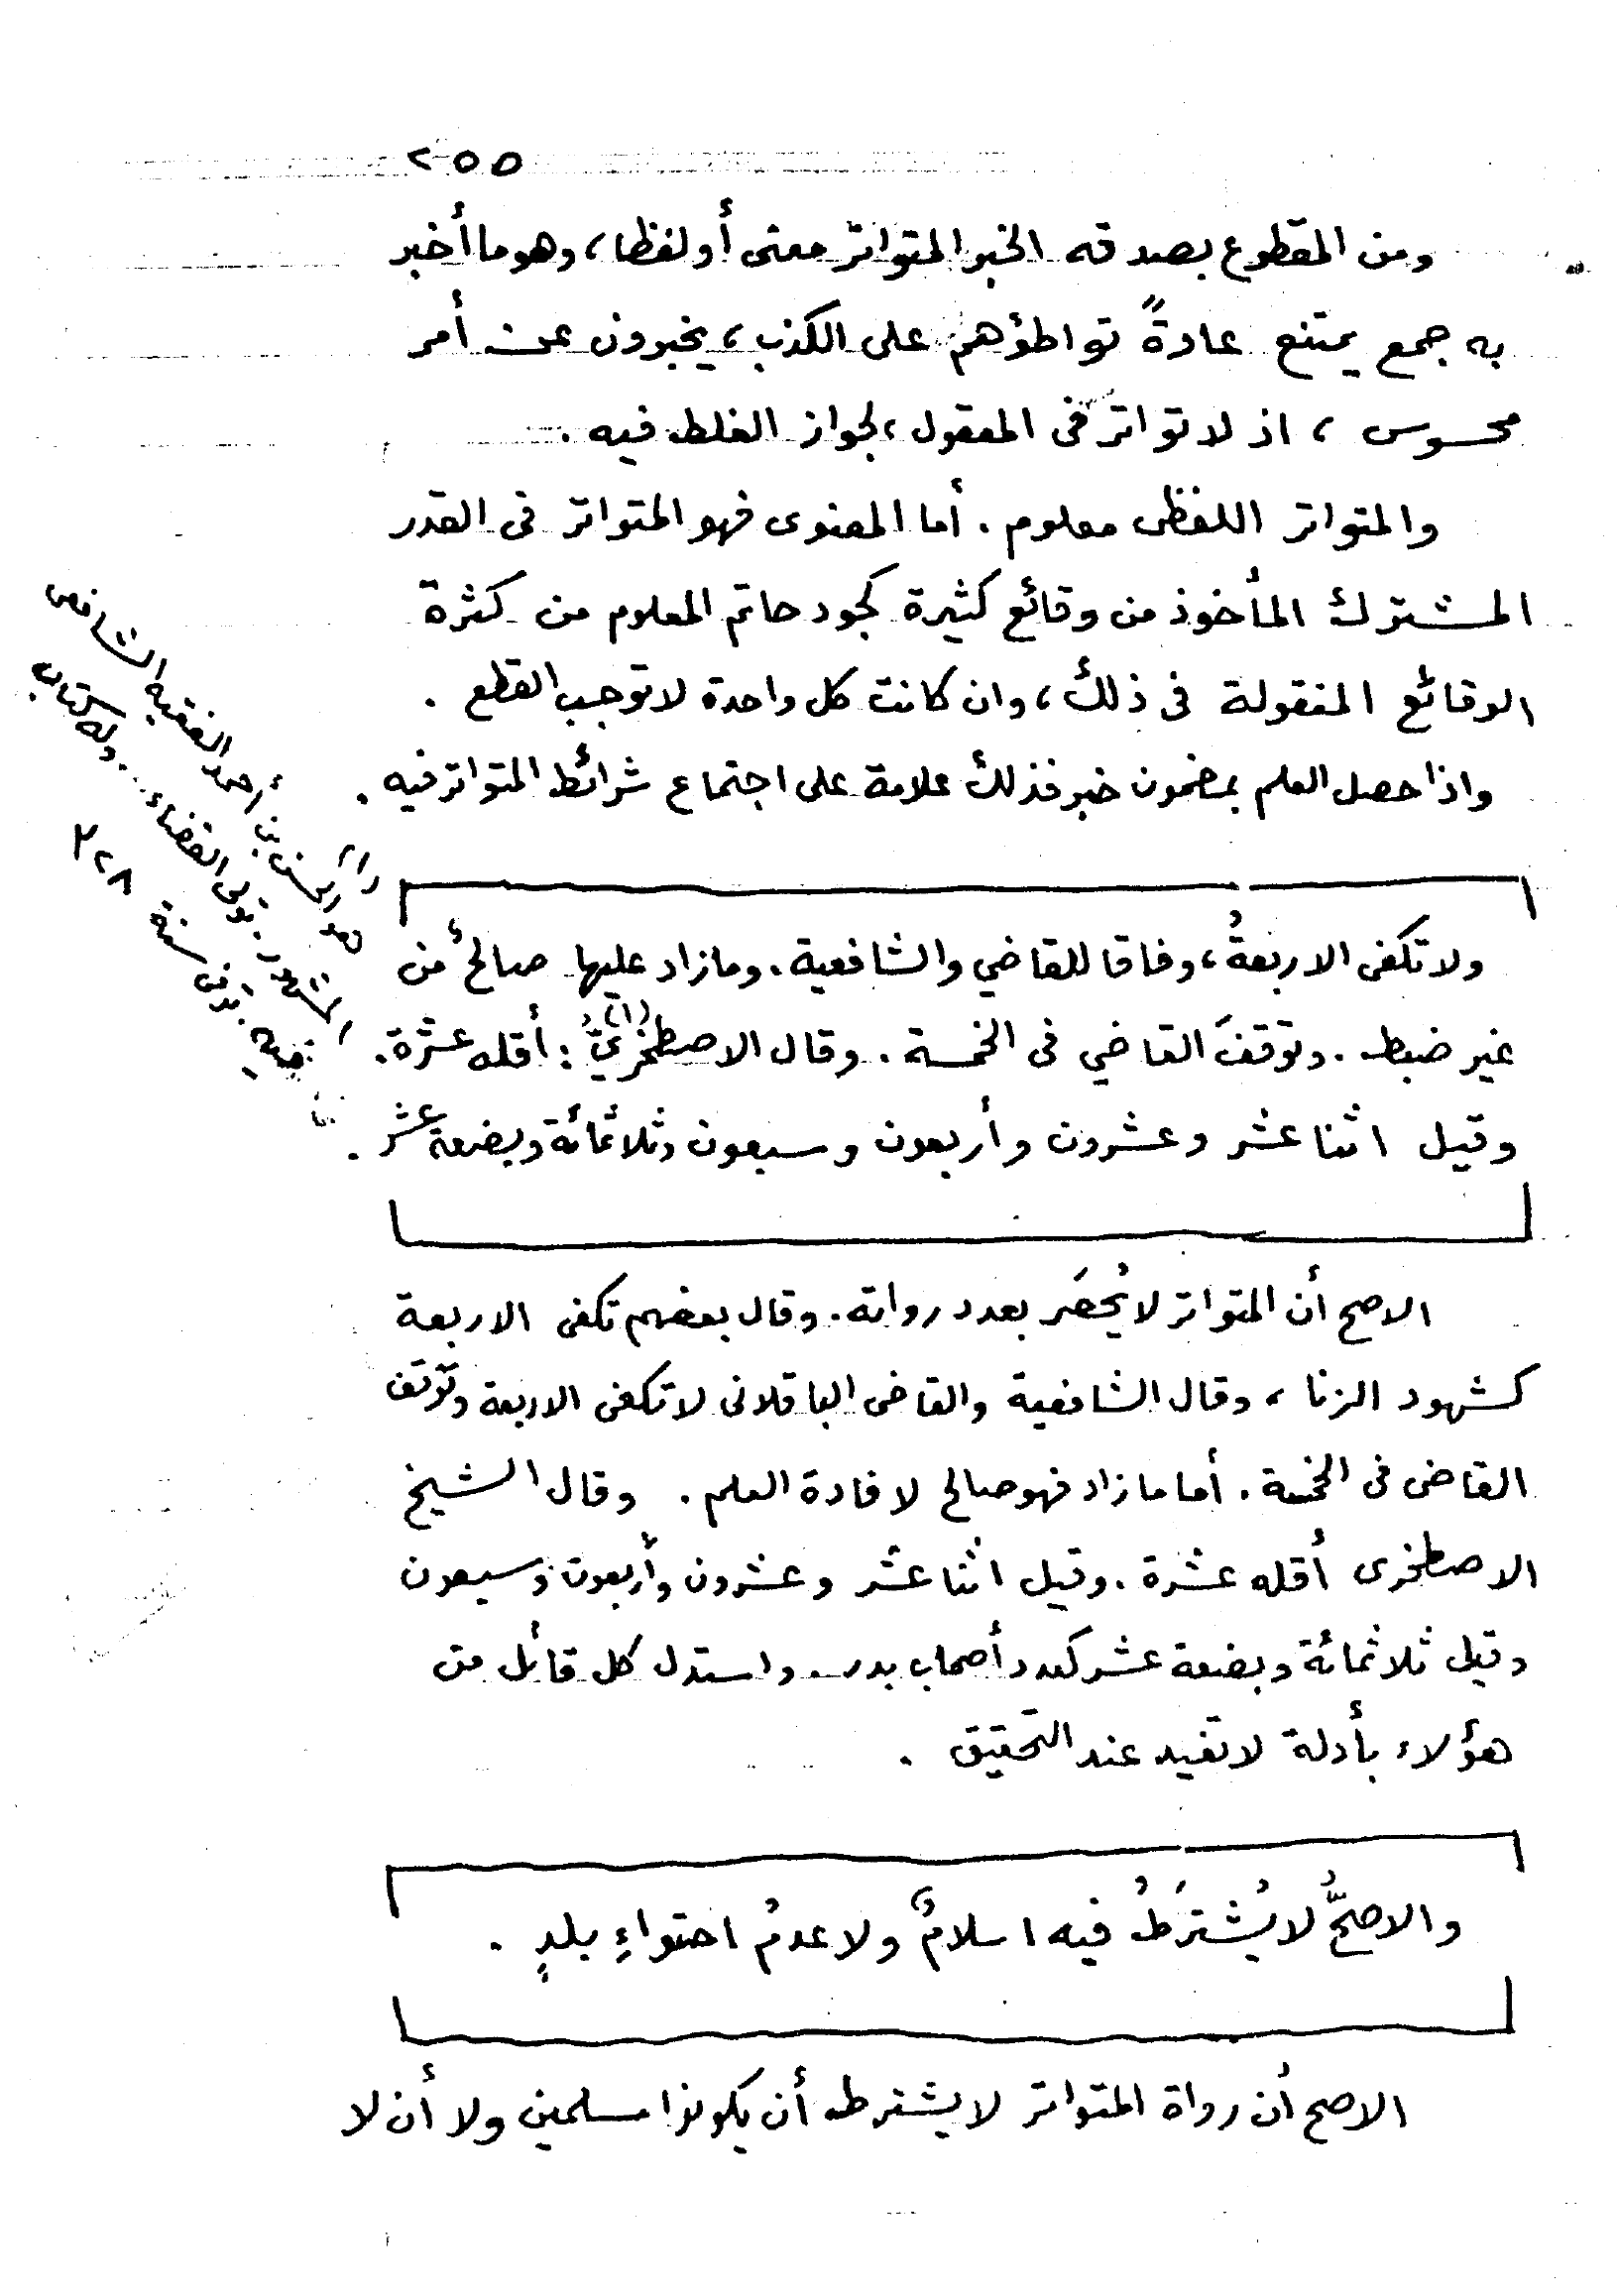 ٢٥٥
ومن المقطوع بصدقه الخبر المتواتر معنى أو لفظا، وهو ما أخبر
به جمع يمتنع عادةً تواطؤهم على الكذب، يخبرون عن أمر
محسوس، اذ لا تواتر فى المعقول، لجواز الغلط فيه.
والمتواتر اللفظى معلوم. أما المعنوى فهو المتواتر فى القدر
المشترك المأخوذ من وقائع كثيرة كجود حاتم المعلوم من كثرة
الوقائع المنقولة فى ذلك، وان كانت كل واحدة لا توجب القطع.
واذا حصل العلم بمضمون خبر فذلك علامة على اجتماع شرائط المتواتر فيه.
ولا تكفى الاربعةُ، وفاقا للقاضي والشافعية. وما زاد عليها صالحٌ من
غير ضبط. وتوقفَ القاضي فى الخمسة. وقال الاصطخريُّ(١): أقله عشرة.
وقيل اثنا عشر وعشرون وأربعون وسبعون وثلاثمائة وبضعة عشر.
الاصح أن المتواتر لا يُحصَر بعدد رواته. وقال بعضهم تكفى الاربعة
كشهود الزنا، وقال الشافعية والقاضى الباقلانى لا تكفى الاربعة وتوقف
القاضى فى الخمسة. أما ما زاد فهو صالح لافادة العلم. وقال الشيخ
الاصطخرى أقله عشرة. وقيل اثنا عشر وعشرون وأربعون وسبعون
وقيل ثلاثمائة وبضعة عشر كعدد أصحاب بدر. واستدل كل قائل من
هؤلاء بأدلة لا تفيد عند التحقيق.
والاصحُّ لا يُشترَطُ فيه اسلامٌ ولا عدمُ احتواءِ بلدٍ.
الاصح أن رواة المتواتر لا يشترط أن يكونوا مسلمين ولا أن لا
(١)
هو الحسن بن أحمد الفقيه الشافعى
المشهور. تولى القضاء.. وله كتاب
توفى سنة ٣٢٨